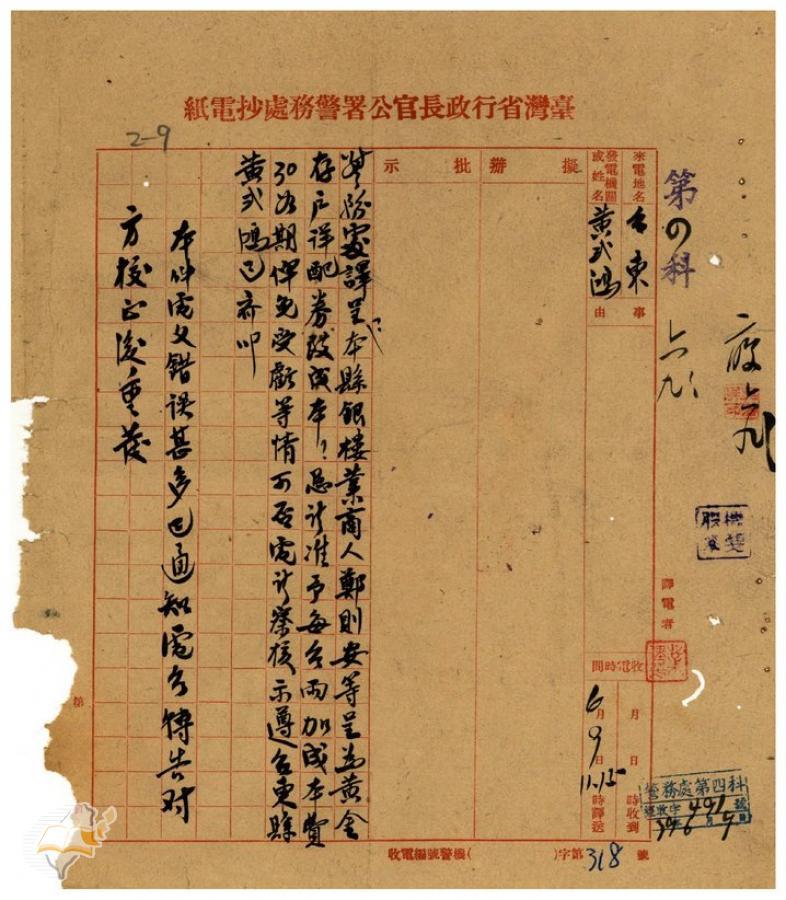 臺灣省行政長官公署警務處抄電紙
2-9
第四科
六九
六九
來電地名
台東
發電機關或姓名
黃式鴻
事由
擬辦
批示
警務處譯呈本縣銀樓業商人鄭則安等呈為黃金
存戶詳配券改成本?懇許准予每台兩加成本費
30為期俾免受虧等情可否電許察核示遵台東縣
黃式鴻已齊叩
本件電文錯誤甚多已通知電台轉告对
方校正後重發
譯電者
收電時間
月 日 時收到
6月9日11.15時譯送
警務處第四科
收電編號警機( )字第318號
第